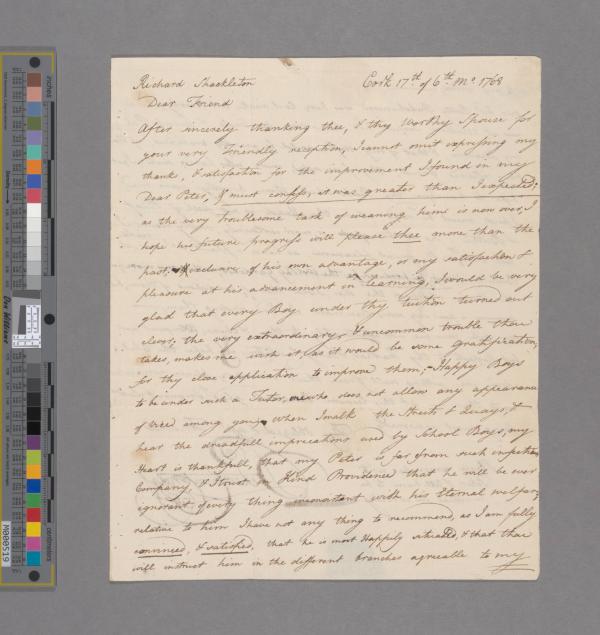 Richard Shackleton Cork 17th of 6th Mo. 1768
Dear Friend
After sincerely thanking thee, & thy Worthy Spouse for
your very Friendly reception, I cannot omit expressing my
thanks, & satisfaction for the improvement I found in my
Dear Peter, & must confess, it was greater than I expected;
as the very troublesome task of weaning him is now over, I
hope his future progress will please thee more than the
past. of his own advantage, or my satisfaction &
pleasure at his advancement in learning, I would be very
glad that every Boy under thy tuition turned out
clever; the very extraordinary & uncommon trouble thou
takes, makes me wish it, as it would be some gratification,
for thy close application to improve them; Happy Boys
to be under such a Tutor, who does not allow any appearance
of Vice among you, when I walk the Streets & Quays, &
hear the dreadfull imprecations used by School Boys, my
Heart is thankfull, that my Peter is far from such
Company, & I trust in Kind Providence that he will be ever
ignorant of every thing with his Eternal welfare;
relative to him I have not any thing to recommend, as I am fully
convinced, & satisfied, that he is most Happily situated, & that thou
will instruct him in the different branches agreeable to my
inches
centimeters
Density
Don Williams
M000519